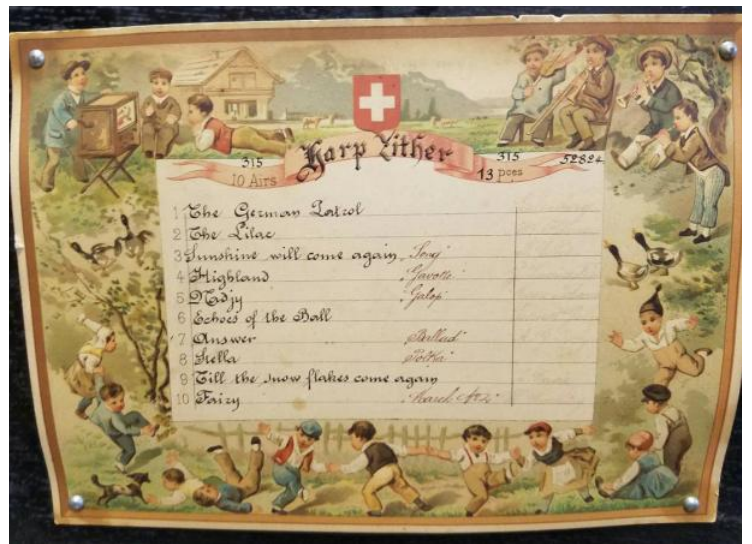 Harp Zither
315 315 52824
10 Airs 13 pces
1 The German Patrol
2 The Lilac
3 Sunshine will come again "Song"
4 Highland "Gavotte"
5 Nadjy "Galop"
6 Echoes of the Ball
7 Answer "Ballad"
8 Stella "Polka"
9 Till the snow flakes come again
10 Fairy "March